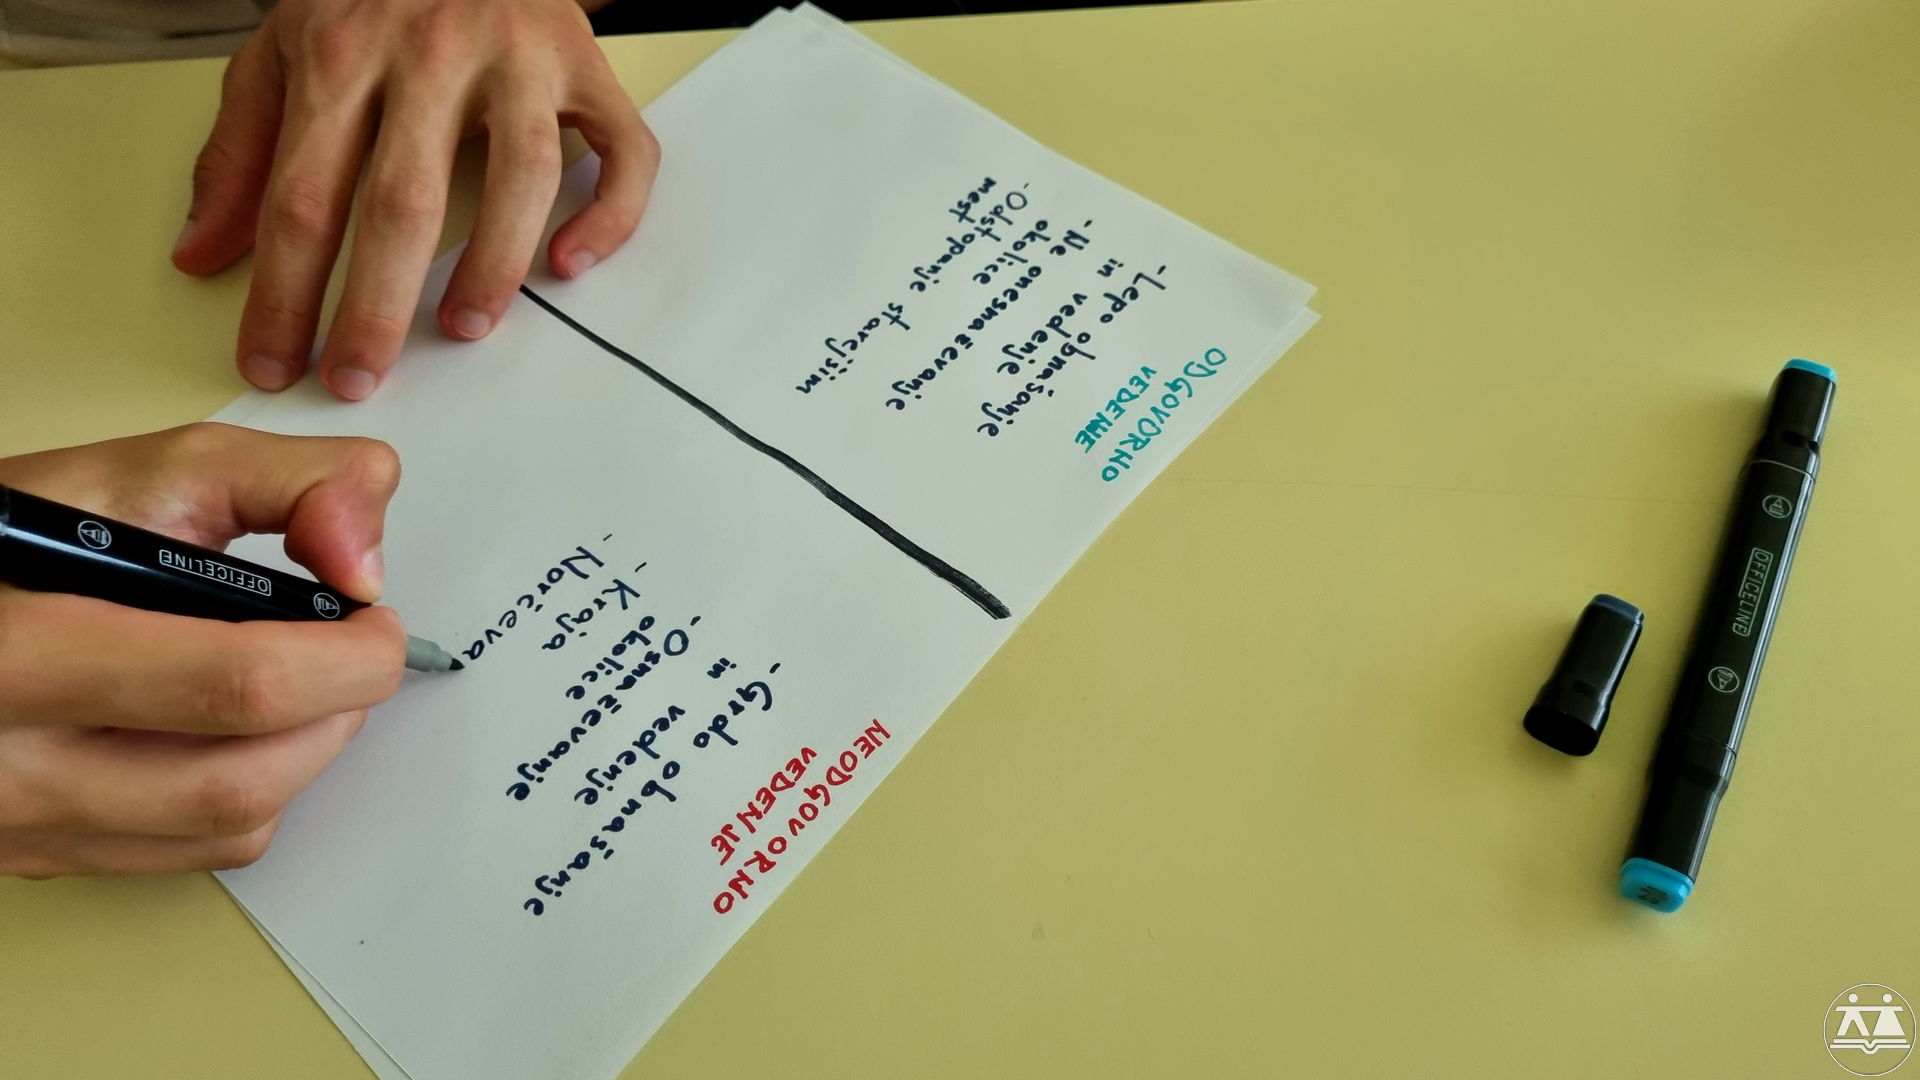 ODGOVORNO
VEDENJE
- Lepo obnašanje
in vedenje
- Ne onesnaževanje
okolice
- Odstopanje starejšim
mest
NEODGOVORNO
VEDENJE
- Grdo obnašanje
in vedenje
- Osnaževanje
okolice
- Kraja
- Norčeva
OFFICELINE
OFFICELINE